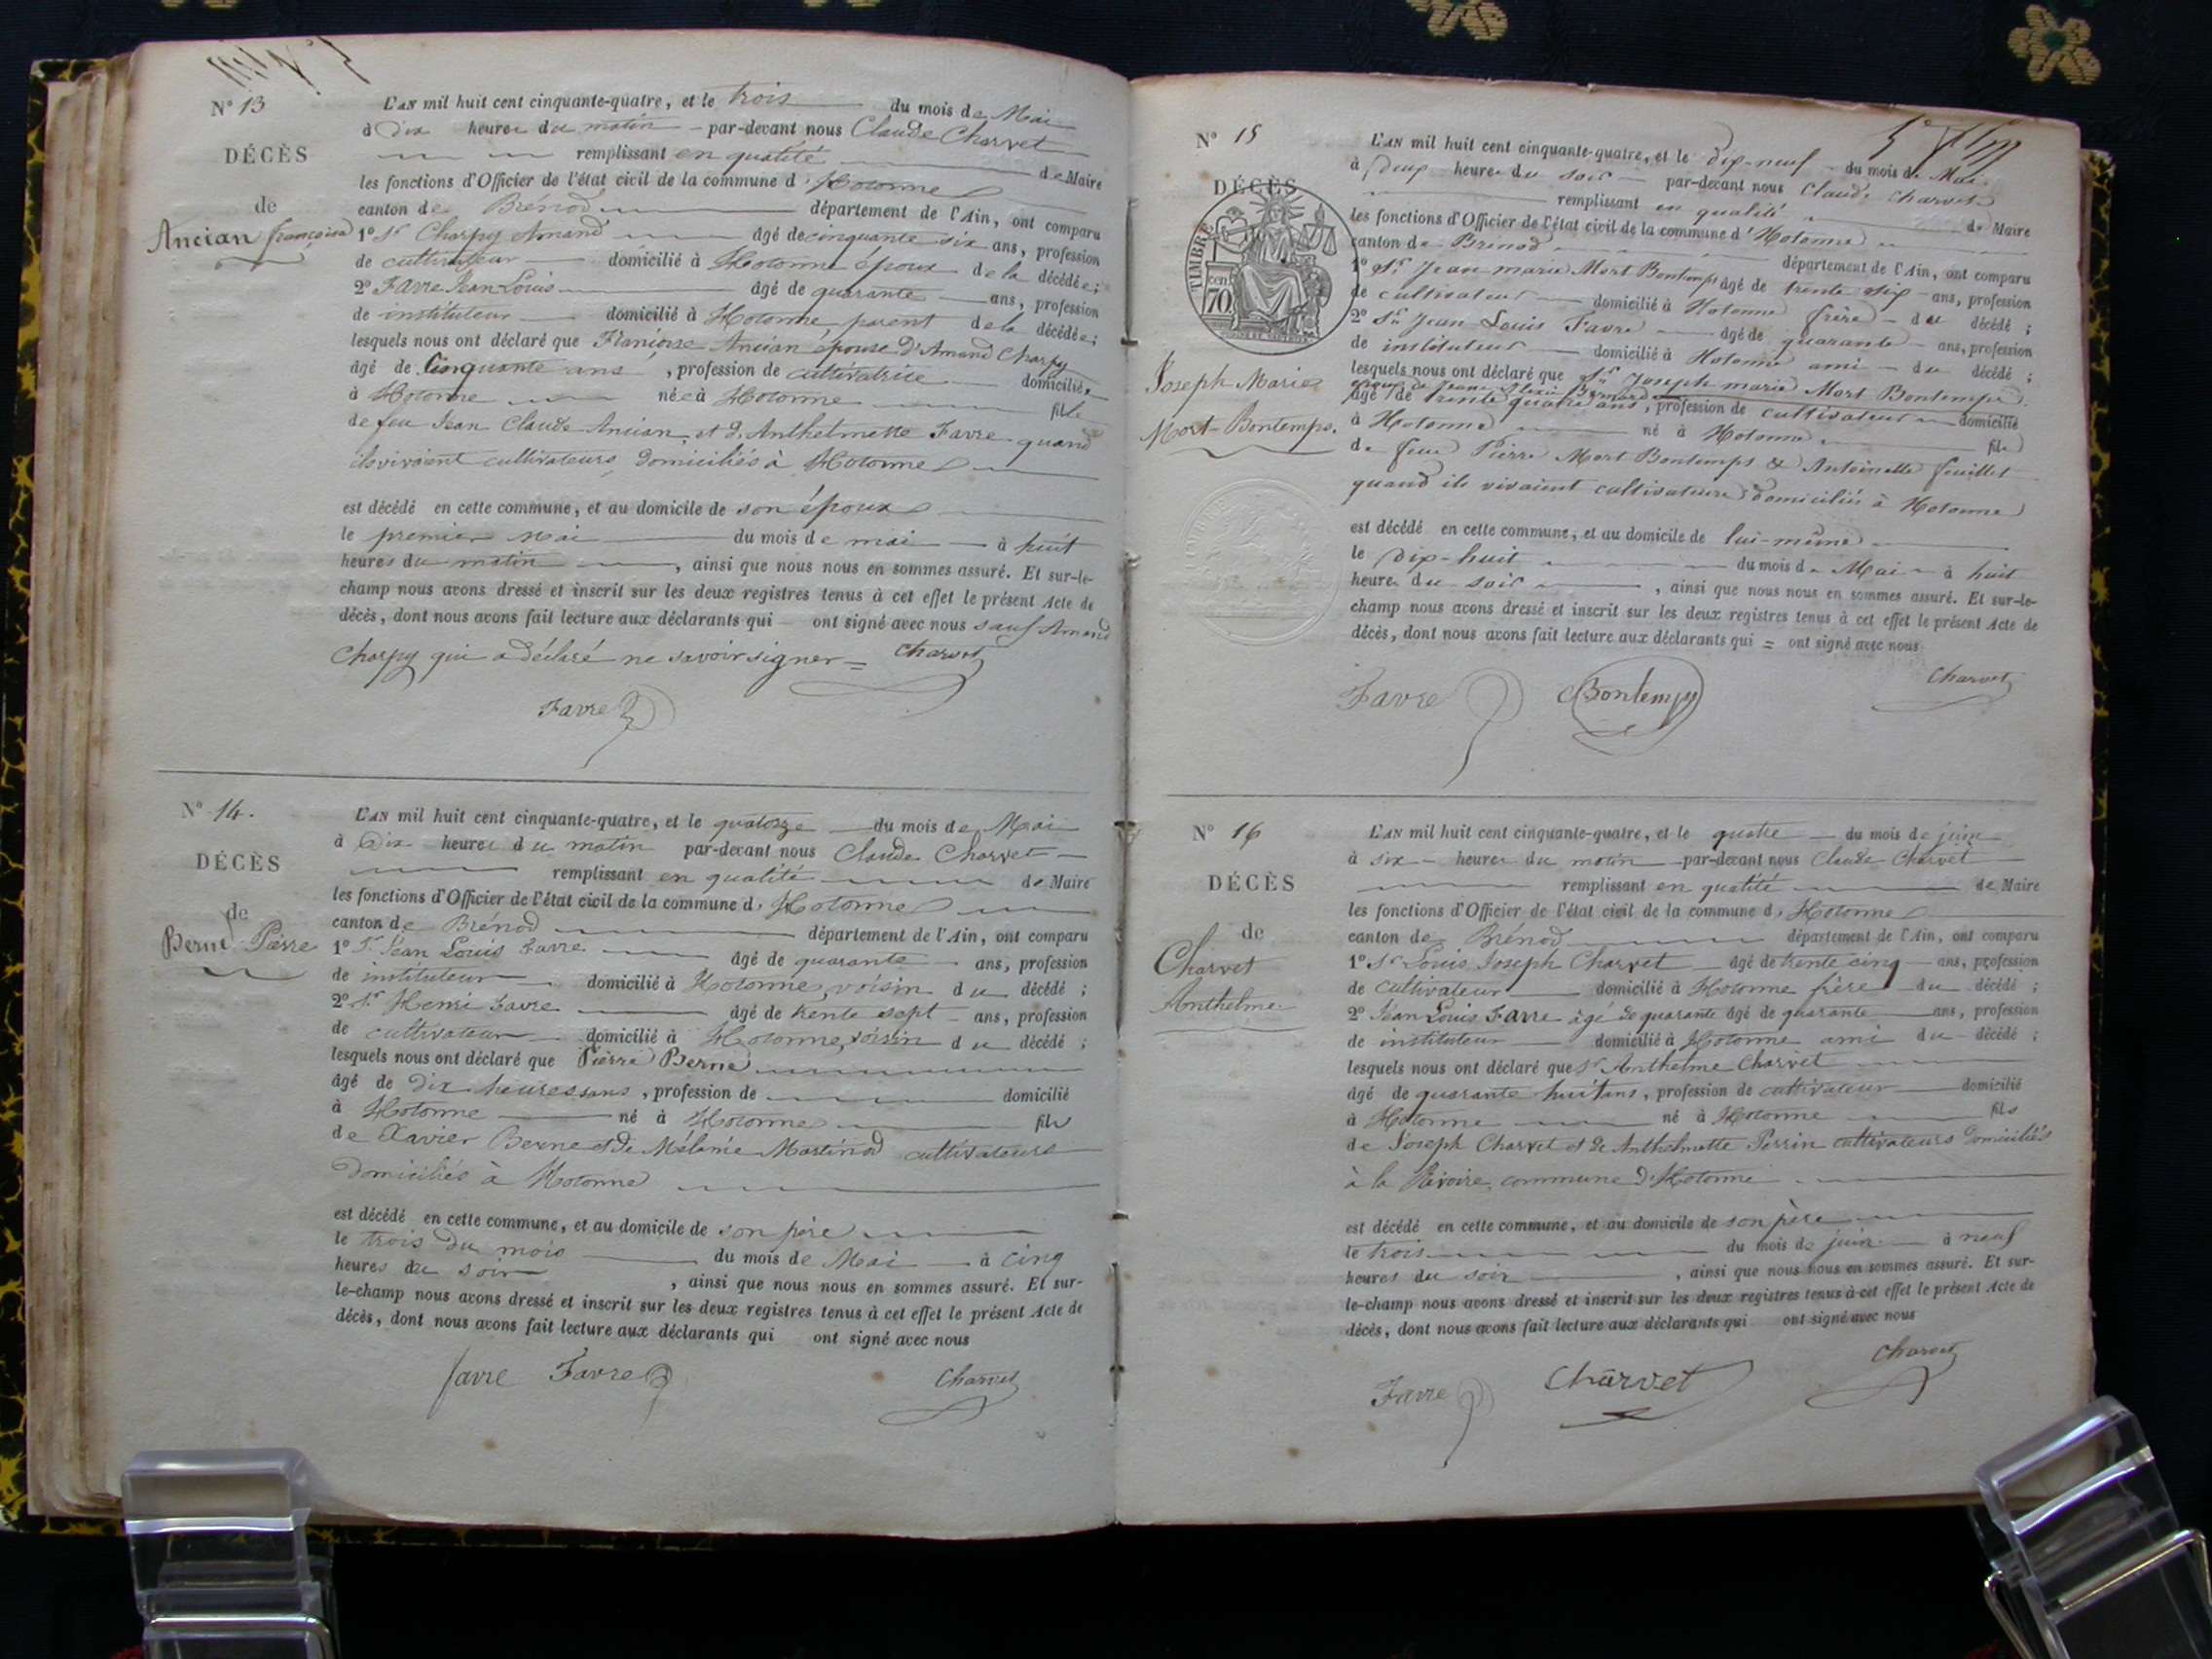 N° 13
DÉCÈS
de
Ancian françoise
L'AN mil huit cent cinquante-quatre, et le trois du mois de Mai
à Dix heures du matin par-devant nous Claude Charvet
remplissant en qualité de Maire
les fonctions d'Officier de l'état civil de la commune d'Hotonne
canton de Brénod département de l'Ain, ont comparu
1° Sr Charpy Amand âgé de cinquante six ans, profession
de cultivateur domicilié à Hotonne époux de la décédée;
2° Favre Jean Louis âgé de quarante ans, profession
de instituteur domicilié à Hotonne, parent de la décédée;
lesquels nous ont déclaré que Françoise Ancian épouse d'Amand Charpy
âgé de Cinquante ans, profession de cultivatrice domiciliée
à Hotonne née à Hotonne fille
de feu Jean Claude Ancian et d'Anthelmette Favre quand
ils vivaient cultivateurs domiciliés à Hotonne
est décédé en cette commune, et au domicile de son époux
le premier Mai du mois de mai à huit
heures du matin, ainsi que nous nous en sommes assuré. Et sur-le-
champ nous avons dressé et inscrit sur les deux registres tenus à cet effet le présent Acte de
décès, dont nous avons fait lecture aux déclarants qui ont signé avec nous sauf Amand
Charpy qui a déclaré ne savoir signer = Charvet
Favre
N° 14.
DÉCÈS
de
Berne Pierre
L'AN mil huit cent cinquante-quatre, et le quatorze du mois de Mai
à Dix heures du matin par-devant nous Claude Charvet
remplissant en qualité de Maire
les fonctions d'Officier de l'état civil de la commune d'Hotonne
canton de Brénod département de l'Ain, ont comparu
1° Sr Jean Louis Favre âgé de quarante ans, profession
de instituteur domicilié à Hotonne, voisin du décédé;
2° Sr Henri Favre âgé de trente sept ans, profession
de cultivateur domicilié à Hotonne, voisin du décédé;
lesquels nous ont déclaré que Pierre Berne
âgé de dix heures ans, profession de domicilié
à Hotonne né à Hotonne fils
de Xavier Berne et de Mélanie Martinod cultivateurs
domiciliés à Hotonne
est décédé en cette commune, et au domicile de son père
le trois du mois du mois de Mai à cinq
heures du soir, ainsi que nous nous en sommes assuré. Et sur-
le-champ nous avons dressé et inscrit sur les deux registres tenus à cet effet le présent Acte de
décès, dont nous avons fait lecture aux déclarants qui ont signé avec nous
Favre Favre Charvet
N° 15
DÉCÈS
TIMBRE
70
Joseph Marie
Mort-Bontemps.
L'AN mil huit cent cinquante-quatre, et le dix-neuf du mois de Mai
à deux heures du soir par-devant nous Claude Charvet
remplissant en qualité de Maire
les fonctions d'Officier de l'état civil de la commune d'Hotonne
canton de Brénod département de l'Ain, ont comparu
1° Sr Jean marie Mort Bontemps âgé de trente six ans, profession
de cultivateur domicilié à Hotonne frère du décédé;
2° Sr Jean Louis Favre âgé de quarante ans, profession
de instituteur domicilié à Hotonne ami du décédé;
lesquels nous ont déclaré que Sr Joseph marie Mort Bontemps
époux de Jeanne
âgé de trente quatre ans, profession de cultivateur domicilié
à Hotonne né à Hotonne fils
de feu Pierre Mort Bontemps & Antoinette feuillet
quand ils vivaient cultivateurs domiciliés à Hotonne
est décédé en cette commune, et au domicile de lui-même
le dix-huit du mois de Mai à huit
heures du soir, ainsi que nous nous en sommes assuré. Et sur-le-
champ nous avons dressé et inscrit sur les deux registres tenus à cet effet le présent Acte de
décès, dont nous avons fait lecture aux déclarants qui = ont signé avec nous
Favre Bontemps Charvet
N° 16
DÉCÈS
de
Charvet
Anthelme
L'AN mil huit cent cinquante-quatre, et le quatre du mois de juin
à six heures du matin par-devant nous Claude Charvet
remplissant en qualité de Maire
les fonctions d'Officier de l'état civil de la commune d'Hotonne
canton de Brénod département de l'Ain, ont comparu
1° Sr Louis Joseph Charvet âgé de trente cinq ans, profession
de cultivateur domicilié à Hotonne frère du décédé;
2° Jean Louis Favre âgé de quarante âgé de quarante ans, profession
de instituteur domicilié à Hotonne ami du décédé;
lesquels nous ont déclaré que Sr Anthelme Charvet
âgé de quarante huit ans, profession de cultivateur domicilié
à Hotonne né à Hotonne fils
de Joseph Charvet et de Anthelmette Perrin cultivateurs domiciliés
à la Rivoire, commune d'Hotonne
est décédé en cette commune, et au domicile de son père
le trois du mois de juin à neuf
heures du soir, ainsi que nous nous en sommes assuré. Et sur-
le-champ nous avons dressé et inscrit sur les deux registres tenus à cet effet le présent Acte de
décès, dont nous avons fait lecture aux déclarants qui ont signé avec nous
Favre Charvet Charvet